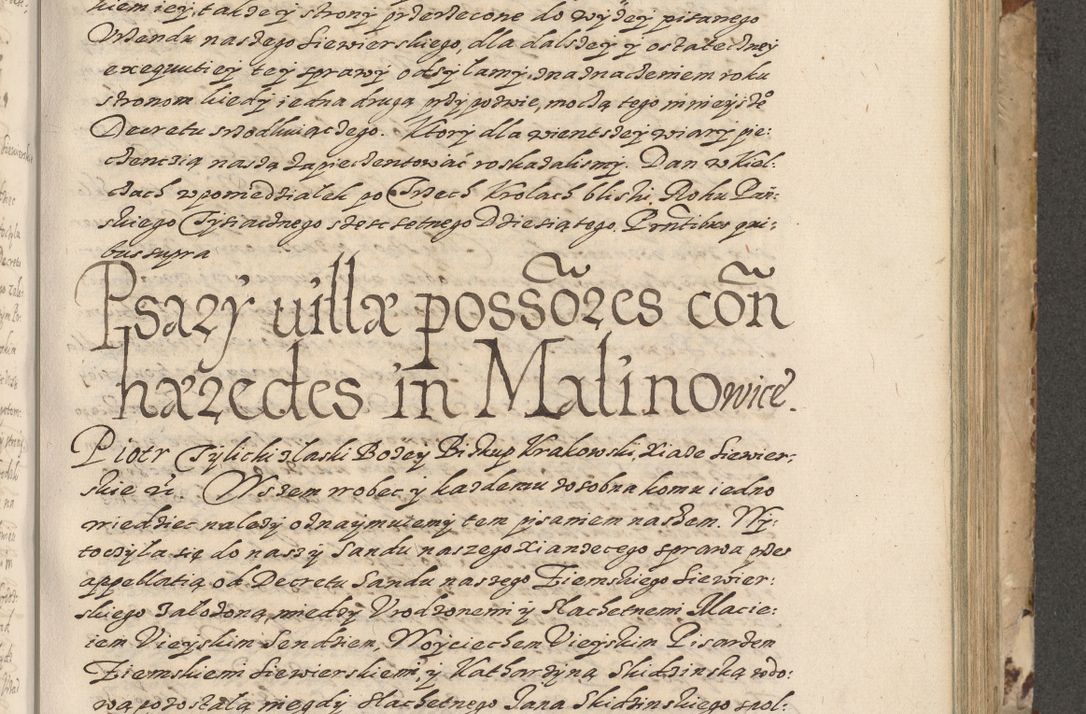 kiem iey, takdecy strony przerzecone do wyzey pisanego
Urzendu naszego Siewierskiego, dla dalszey y ostateczney
exequutiey tey sprawy odsylamy, znaznaczeniem roku
stronom kiedy iedna drugą przypozwie, moczą tego ninieysze°
Decretu srzodkuiączego. Ktory dla wientszey wiary pie:
czencią naszą zapieczentować roskazalismy. Dan w Kiel:
czach w poniedzialek po Trzech Krolach bliski, Roku Pań:
skiego Tysiacznego szesc setnego Dziesiątego. Pńtibus qui:
bus supra
Psary uillæ possõres cõn
hæredes in Malinowice.
Piotr Tylicki z laski Bozey Biskup Krakowski, Xiaze Siewier:
skie &c. Wszem wobec y kazdemu zosobna komu iedno
wiedziec nalezy oznaymuiemy tem pisaniem naszem. Wy:
toczyla się do naszy Sandu naszego Xianzecego sprawa przez
appellatią od Decretu Sandu naszego Ziemskiego Siewier:
skiego Zalozoną, miedzy Urodzonemi y Slachetnemi Macie:
iem Vieyskim Sendziem, Woyciechem Vieyskim Pisarzem
Ziemskiemi Siewierskiemi, y Katharzyną Skidzinską wdo:
wą pozostalą miegdy Slachetnego Jana Skidzinskiego spol: